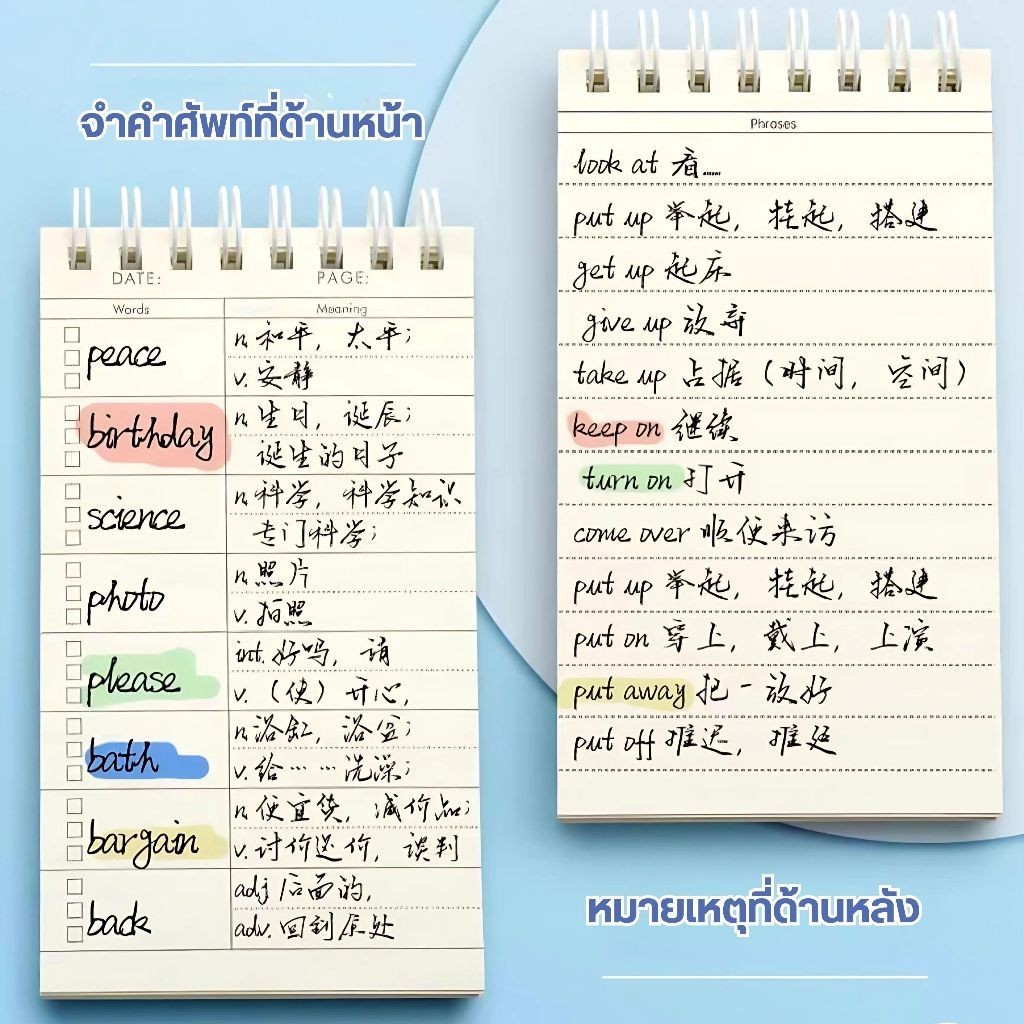 จำคำศัพท์ที่ด้านหน้า
DATE: PAGE:
Words Meaning
peace n. 和平，太平；
v. 安静
birthday n. 生日，诞辰；
诞生的日子
science n. 科学，科学知识
专门科学；
photo n. 照片
v. 拍照
please int. 好吗，请
v.（使）开心，
bath n. 浴缸，浴盆；
v. 给……洗澡；
bargain n. 便宜货，减价品；
v. 讨价还价，谈判
back adj 后面的，
adv. 回到原处
Phrases
look at 看……
put up 举起，挂起，搭建
get up 起床
give up 放弃
take up 占据（时间，空间）
keep on 继续
turn on 打开
come over 顺便来访
put up 举起，挂起，搭建
put on 穿上，戴上，上演
put away 把一放好
put off 推迟，推延
หมายเหตุที่ด้านหลัง